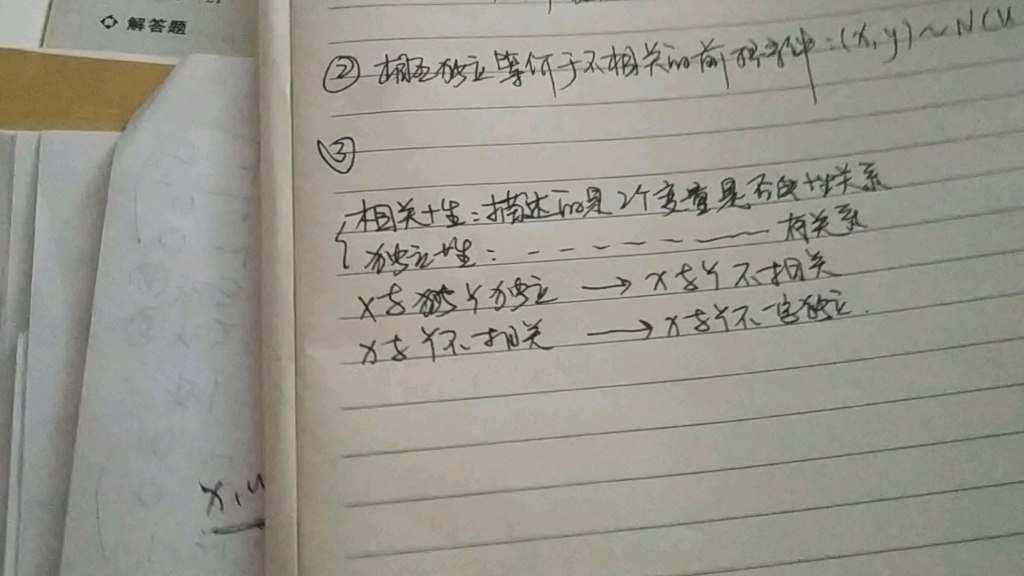 ◇ 解答题
② 相互独立等价于不相关的前提条件:(X,y)~N(u
③
相关性:描述的是2个变量是否线性关系
独立性: - - - - - - 有关系
X与Y独立 → X与Y不相关
X与Y不相关 → X与Y不一定独立.
x,u